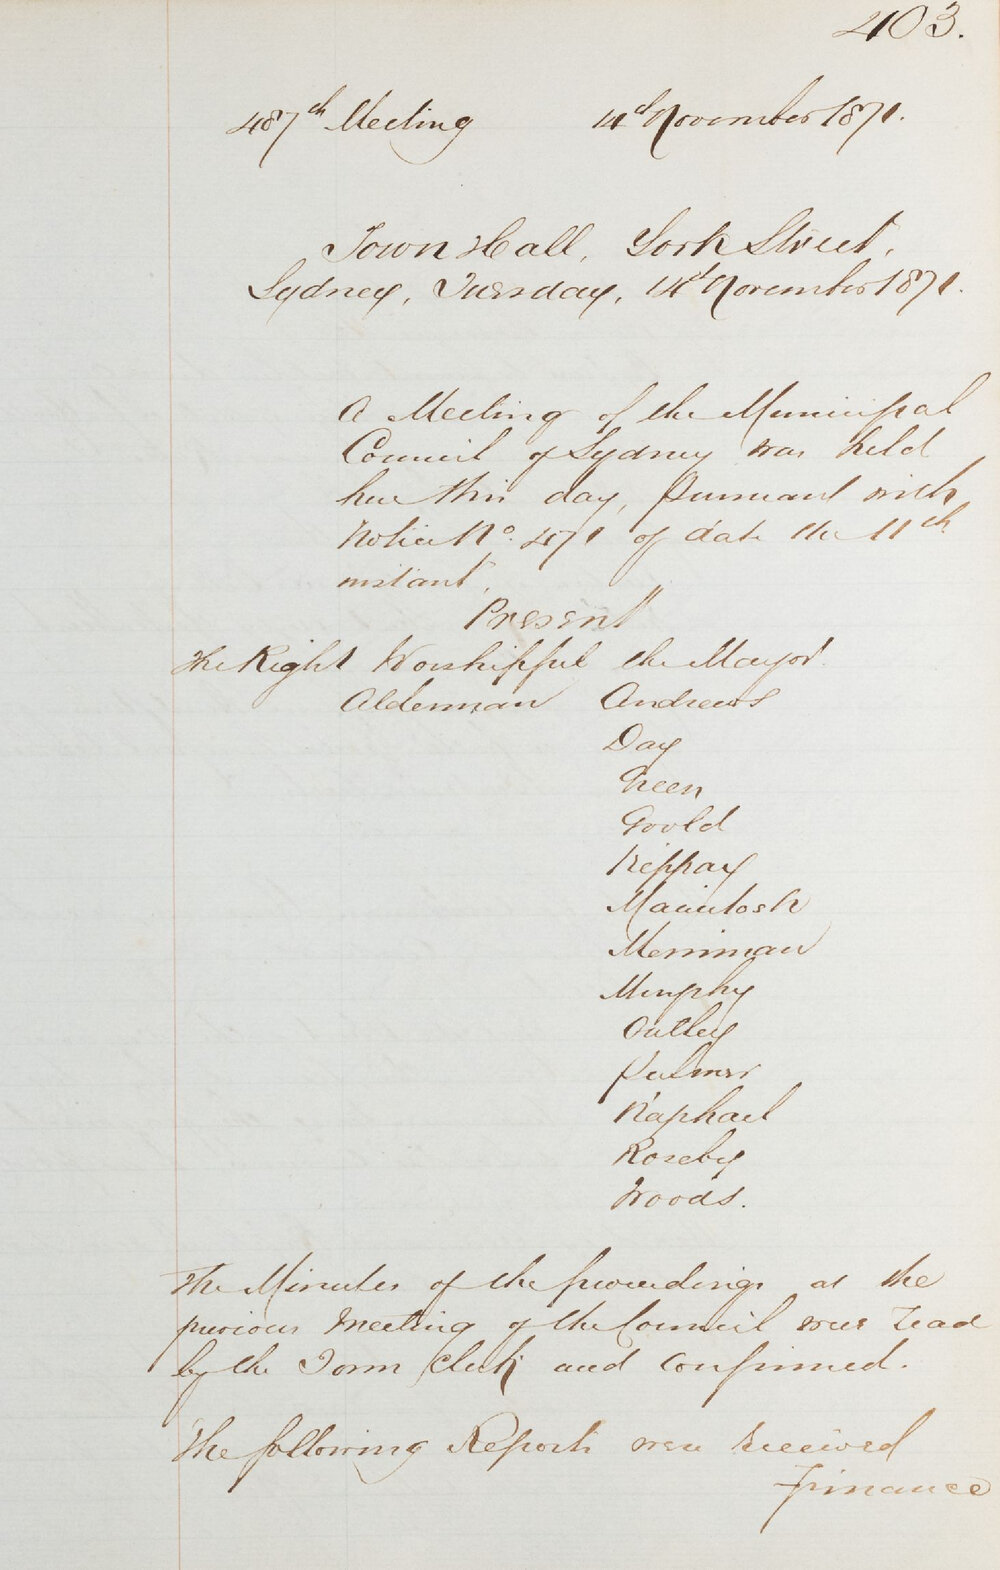 403.
487th Meeting 14th November 1871.
Town Hall, York Street,
Sydney, Tuesday, 14th November 1871.
A Meeting of the Municipal
Council of Sydney was held
here this day, pursuant with
Notice No. 471 of date the 11th
instant.
Present
The Right Worshipful the Mayor.
Alderman Andrews
Day
Green
Goold
Kippax
Macintosh
Merriman
Murphy
Oatley
Palmer
Raphael
Roseby
Woods.
The Minutes of the proceedings at the
previous Meeting of the Council were read
by the Town Clerk and confirmed.
The following Reports were received
Finance